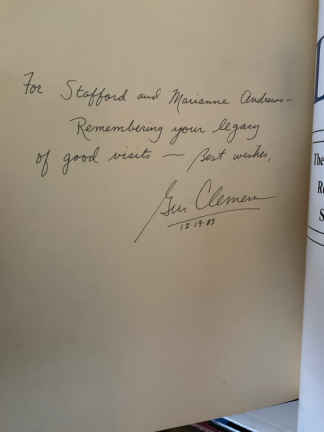 For Stafford and Marianne Andrews -
Remembering your legacy
of good visits — Best wishes,
Gus Clemens
12-19-83
The
R
S